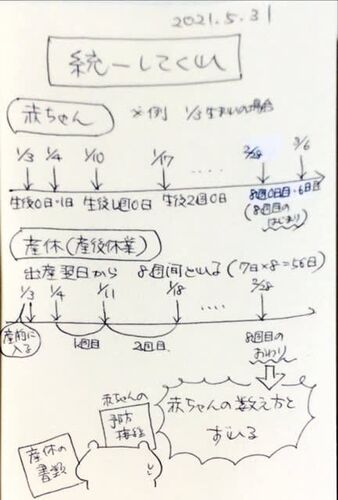 2021.5.31
統一してくれ
赤ちゃん ※例 1/3生まれの場合
1/3 1/4 1/10 1/17 ‥‥ 2/28 3/6
生後0日・1日 生後1週0日 生後2週0日 8週0日目・6日目
(8週目のはじまり)
産休(産後休業)
出産翌日から 8週間とれる(7日×8=56日)
1/3 1/4 1/11 1/18 ‥‥ 2/28
産前に入る
1週目 2週目 8週目のおわり
赤ちゃんの数え方と
ずれる
赤ちゃんの
予防
接種
産休の
書類